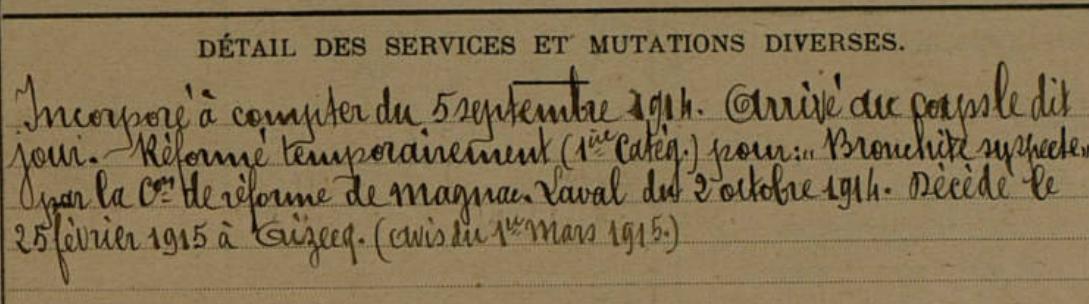 DÉTAIL DES SERVICES ET MUTATIONS DIVERSES.
Incorporé à compter du 5 septembre 1914. Arrivé au corps le dit
jour. Réformé temporairement (1ère Catég.) pour : " Bronchite suspecte "
par la Con de réforme de Magnac-Laval du 2 octobre 1914. Décédé le
25 février 1915 à Aizecq. (avis du 1er Mars 1915.)